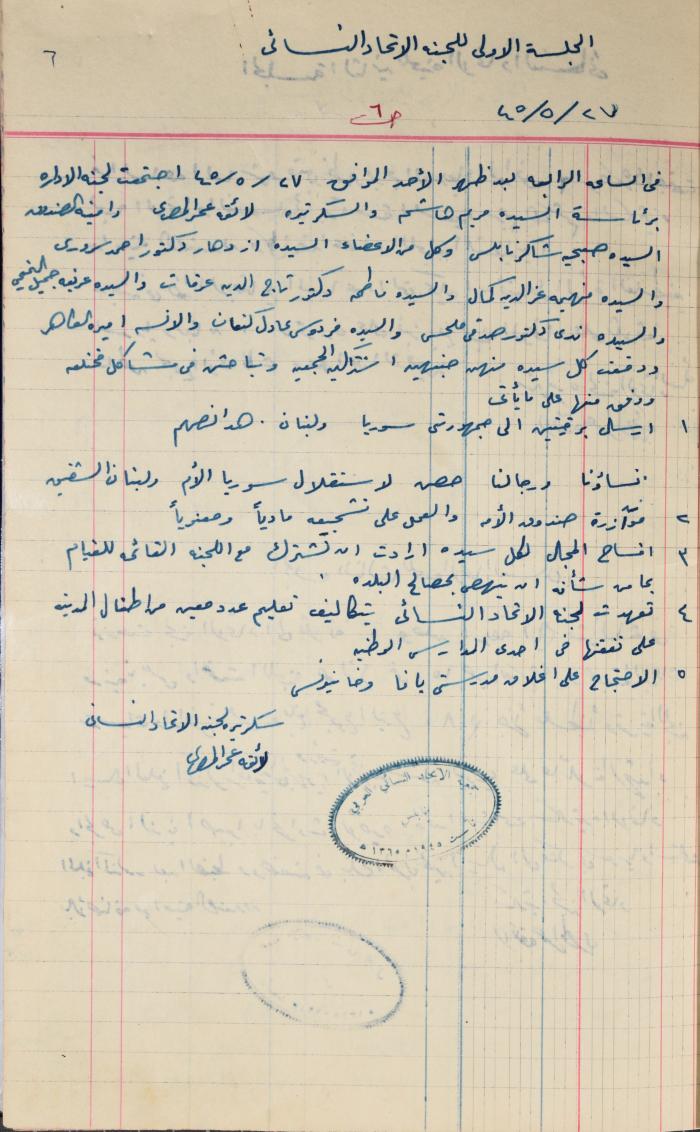 الجلسة الاولى للجنة الاتحاد النسائي
٦
٤٥/٥/٢٧
ص ٦
في الساعه الرابعه بعد ظهر الأحد الموافق ٢٧/٥/٤٥ اجتمعت لجنة الاداره
برئاسة السيده مريم هاشم والسكرتيره لائقه عمر المصري وامينة الصندوق
السيده صبحيه شاكر نابلسي وكل من الاعضاء السيده ازدهار دكتور احمد سروري
والسيده فهميه عز الدين كمال والسيده فاطمه دكتور تاج الدين عرفات والسيده عرفيه جميل النمر
والسيده ندى دكتور صدقي ملحس والسيده فردوس عادل كنعان والانسه اميره الظاهر
ودفعت كل سيده منهن جنيهين اشتراكيه الجمعيه وتباحثن في مشاكل مختلفه
ووفق منها على ما يأتي
١ ارسال برقيتين الى جمهورتي سوريا ولبنان . هذا نصهم
نساؤنا ورجالنا حصن لاستقلال سوريا الأم ولبنان الشقيق
٢ مؤآزرة صندوق الأمه والعمل على تشجيعه مادياً ومعنوياً
٣ افساح المجال لكل سيده ارادت ان تشترك مع اللجنه القائمه للقيام
بما من شأنه ان ينهض بمصالح البلده .
٤ تعهدت لجنة الاتحاد النسائي بتكاليف تعليم عدد معين من اطفال المدينه
على نفقتها في احدى المدارس الوطنيه
٥ الاحتجاج على اغلاق مدرستي يافا وخانيونس
سكرتيرة لجنة الاتحاد النسائي
لائقه عمر المصري
جمعية الاتحاد النسائي العربي
نابلس
تأسست ١٩٤٥ م ١٣٦٥ ه